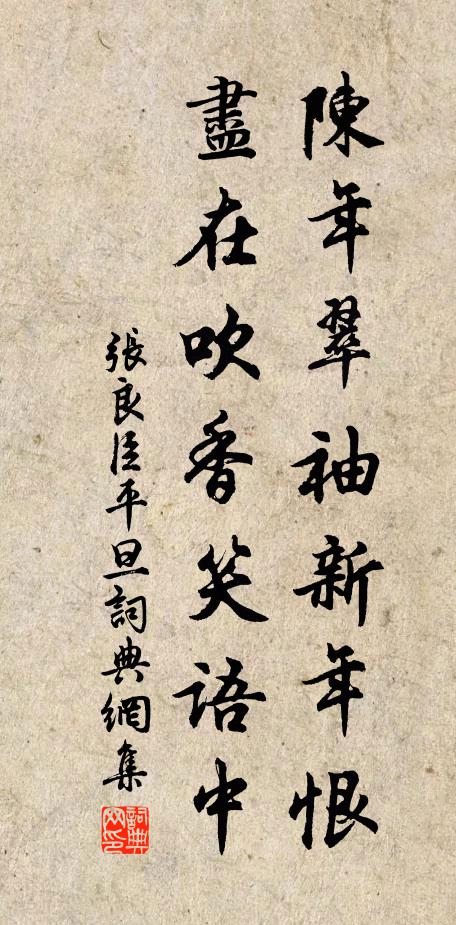 陳年翠袖新年恨
盡在吹香笑語中
張良臣平旦詞典網集
詞典網印